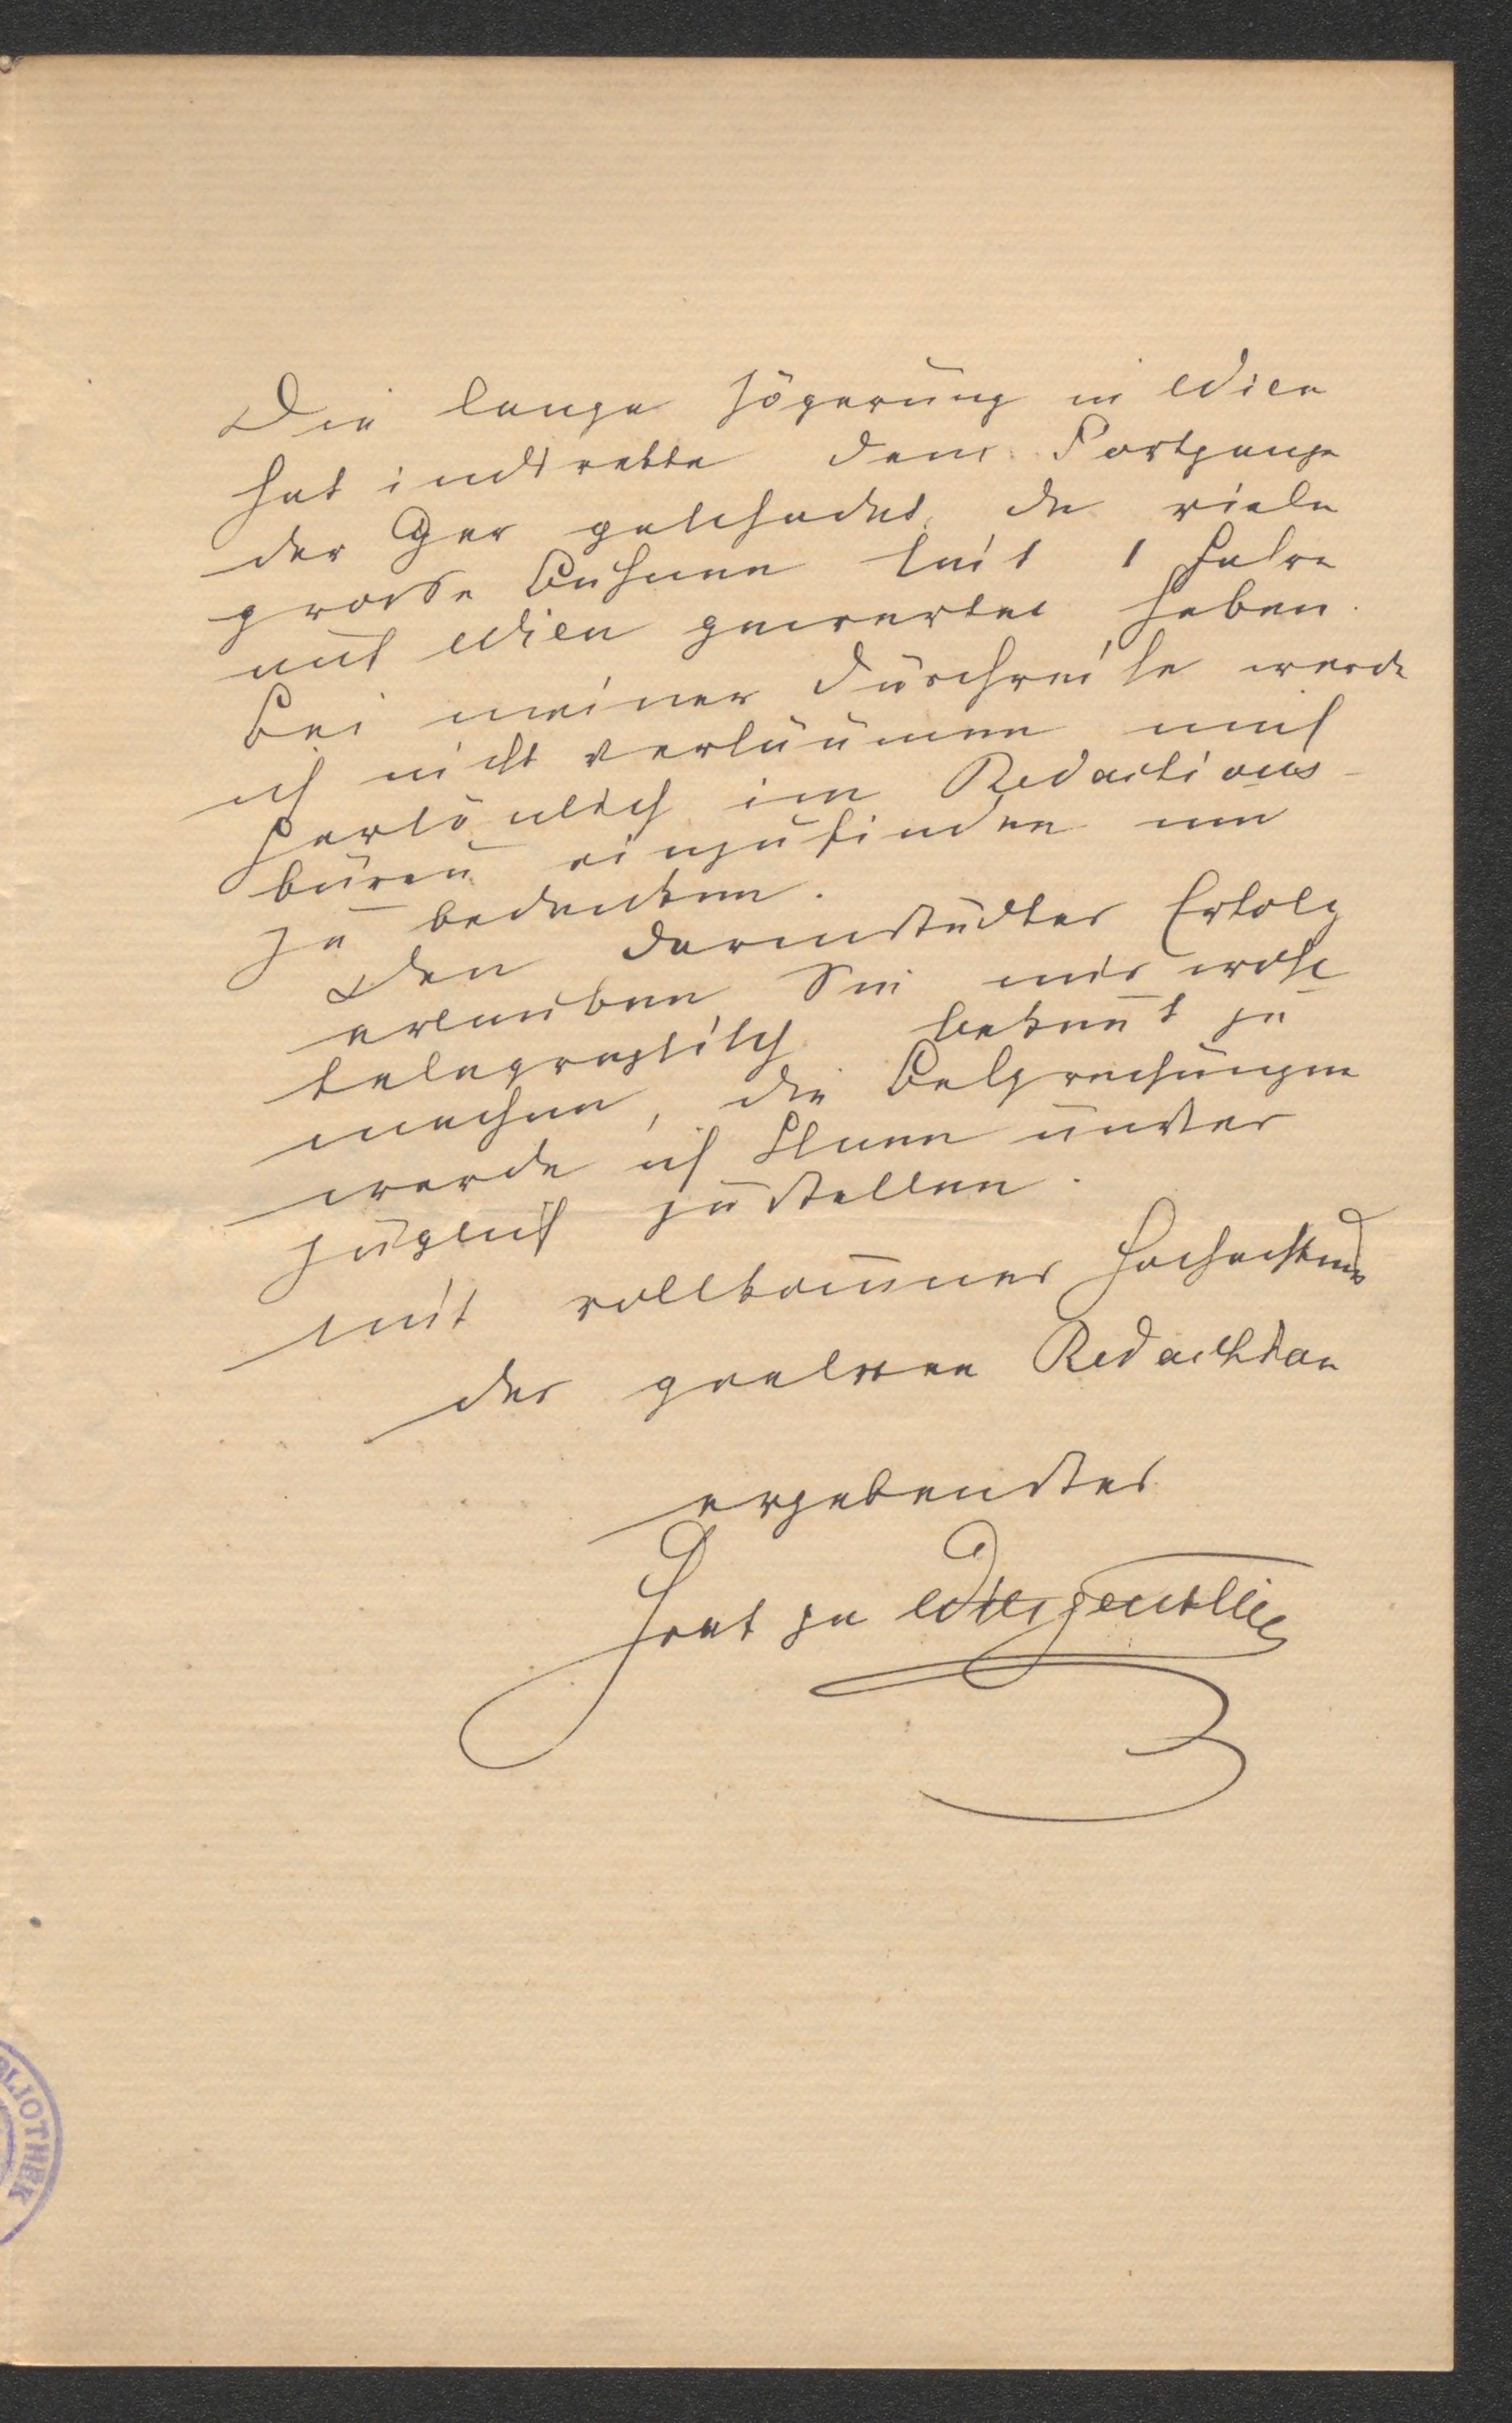 Die lange Zögerung in Wien
hat indirekte dem Fortgange
der Oper geschadet, da viele
grosse Buhnen seit 1 Jahre
auf Wien gewartet haben.
Bei meiner Durchreise werde
ich nicht versäumen mich
persönlich im Redactions-
büreau einzufinden um
zu bedanken.
Den Darmstädter Erfolg
erlauben Sie mir wohl
telegraphisch bekannt zu
machen, die Besprechungen
werde ich Ihnen unver
züglich zustellen.
Mit vollkommner Hochachtung
der geehrten Redacktion
ergebenster
BLIOTHEK